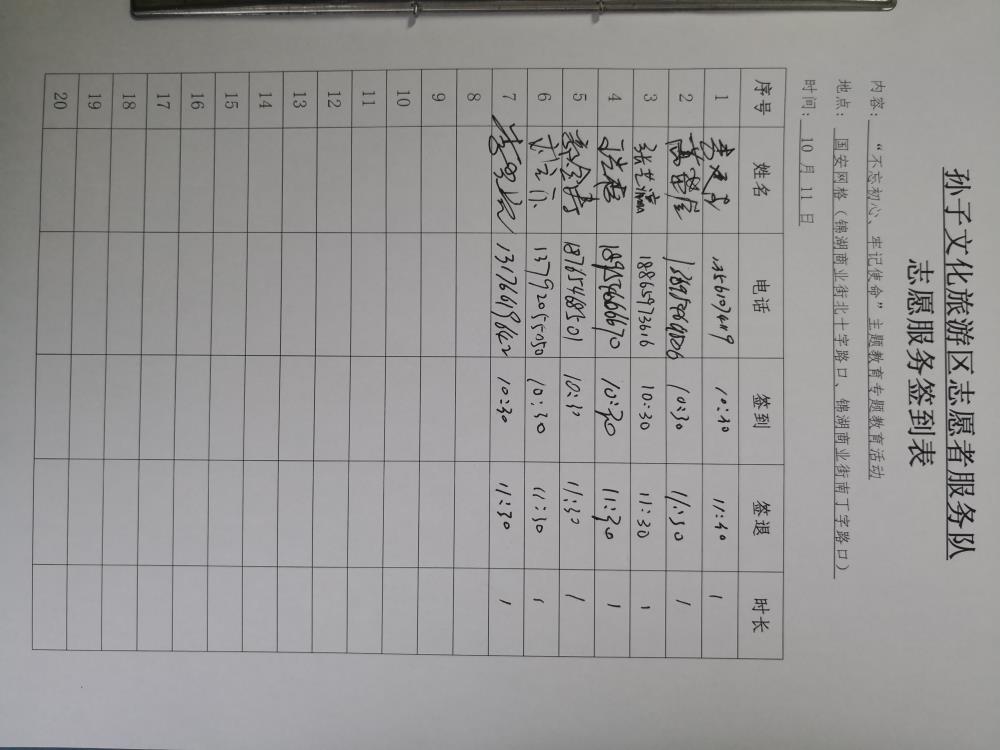 孙子文化旅游区志愿者服务队
志愿服务签到表
内容：“不忘初心、牢记使命”主题教育专题教育活动
地点：国安网格（锦湖商业街北十字路口、锦湖商业街南丁字路口）
时间：10月11日
序号 姓名 电话 签到 签退 时长
1 10:30 11:30 1
2 10:30 11:30 1
3 张艺 18865973616 10:30 11:30 1
4 18954666670 10:30 11:30 1
5 18765468501 10:30 11:30 1
6 13792055050 10:30 11:30 1
7 13176619842 10:30 11:30 1
8
9
10
11
12
13
14
15
16
17
18
19
20